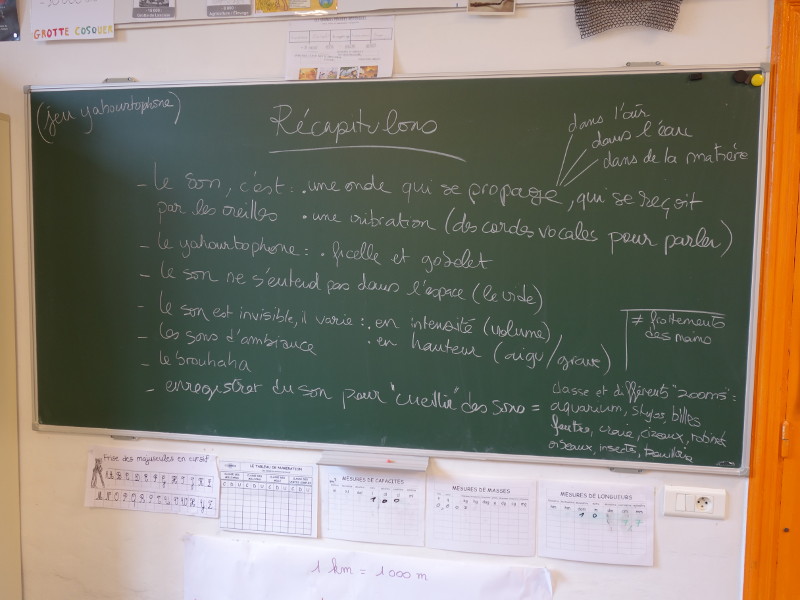 GROTTE COSQUER
(jeu yahourtophone)
Récapitulons
dans l'air
dans l'eau
dans de la matière
- le son, c'est : . une onde qui se propage, qui se reçoit
par les oreilles . une vibration (des cordes vocales pour parler)
- le yahourtophone : . ficelle et gobelet
- le son ne s'entend pas dans l'espace (le vide)
- le son est invisible, il varie : . en intensité (volume)
. en hauteur (aigu/grave)
- les sons d'ambiance
- le brouhaha
- enregistrer du son pour "cueillir" des sons =
≠ frottements
des mains
classe et différents "zooms" :
aquarium, stylos, billes
feutres, craie, ciseaux, robinet
oiseaux, insects,
Frise des majuscules en cursif
LE TABLEAU DE NUMÉRATION
MESURES DE CAPACITÉS
MESURES DE MASSES
MESURES DE LONGUEURS
1 km = 1000 m